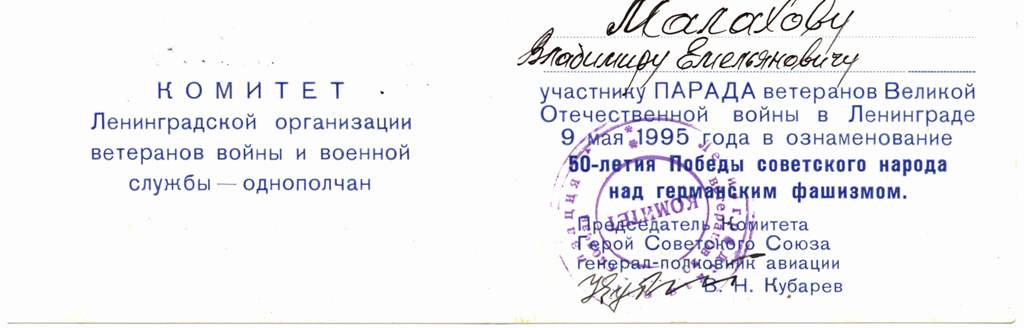 КОМИТЕТ
Ленинградской организации
ветеранов войны и военной
службы — однополчан
Малахову
Владимиру Емельяновичу
участнику ПАРАДА ветеранов Великой
Отечественной войны в Ленинграде
9 мая 1995 года в ознаменование
50-летия Победы советского народа
над германским фашизмом.
КОМИТЕТ
Председатель Комитета
Герой Советского Союза
генерал-полковник авиации
В. Н. Кубарев